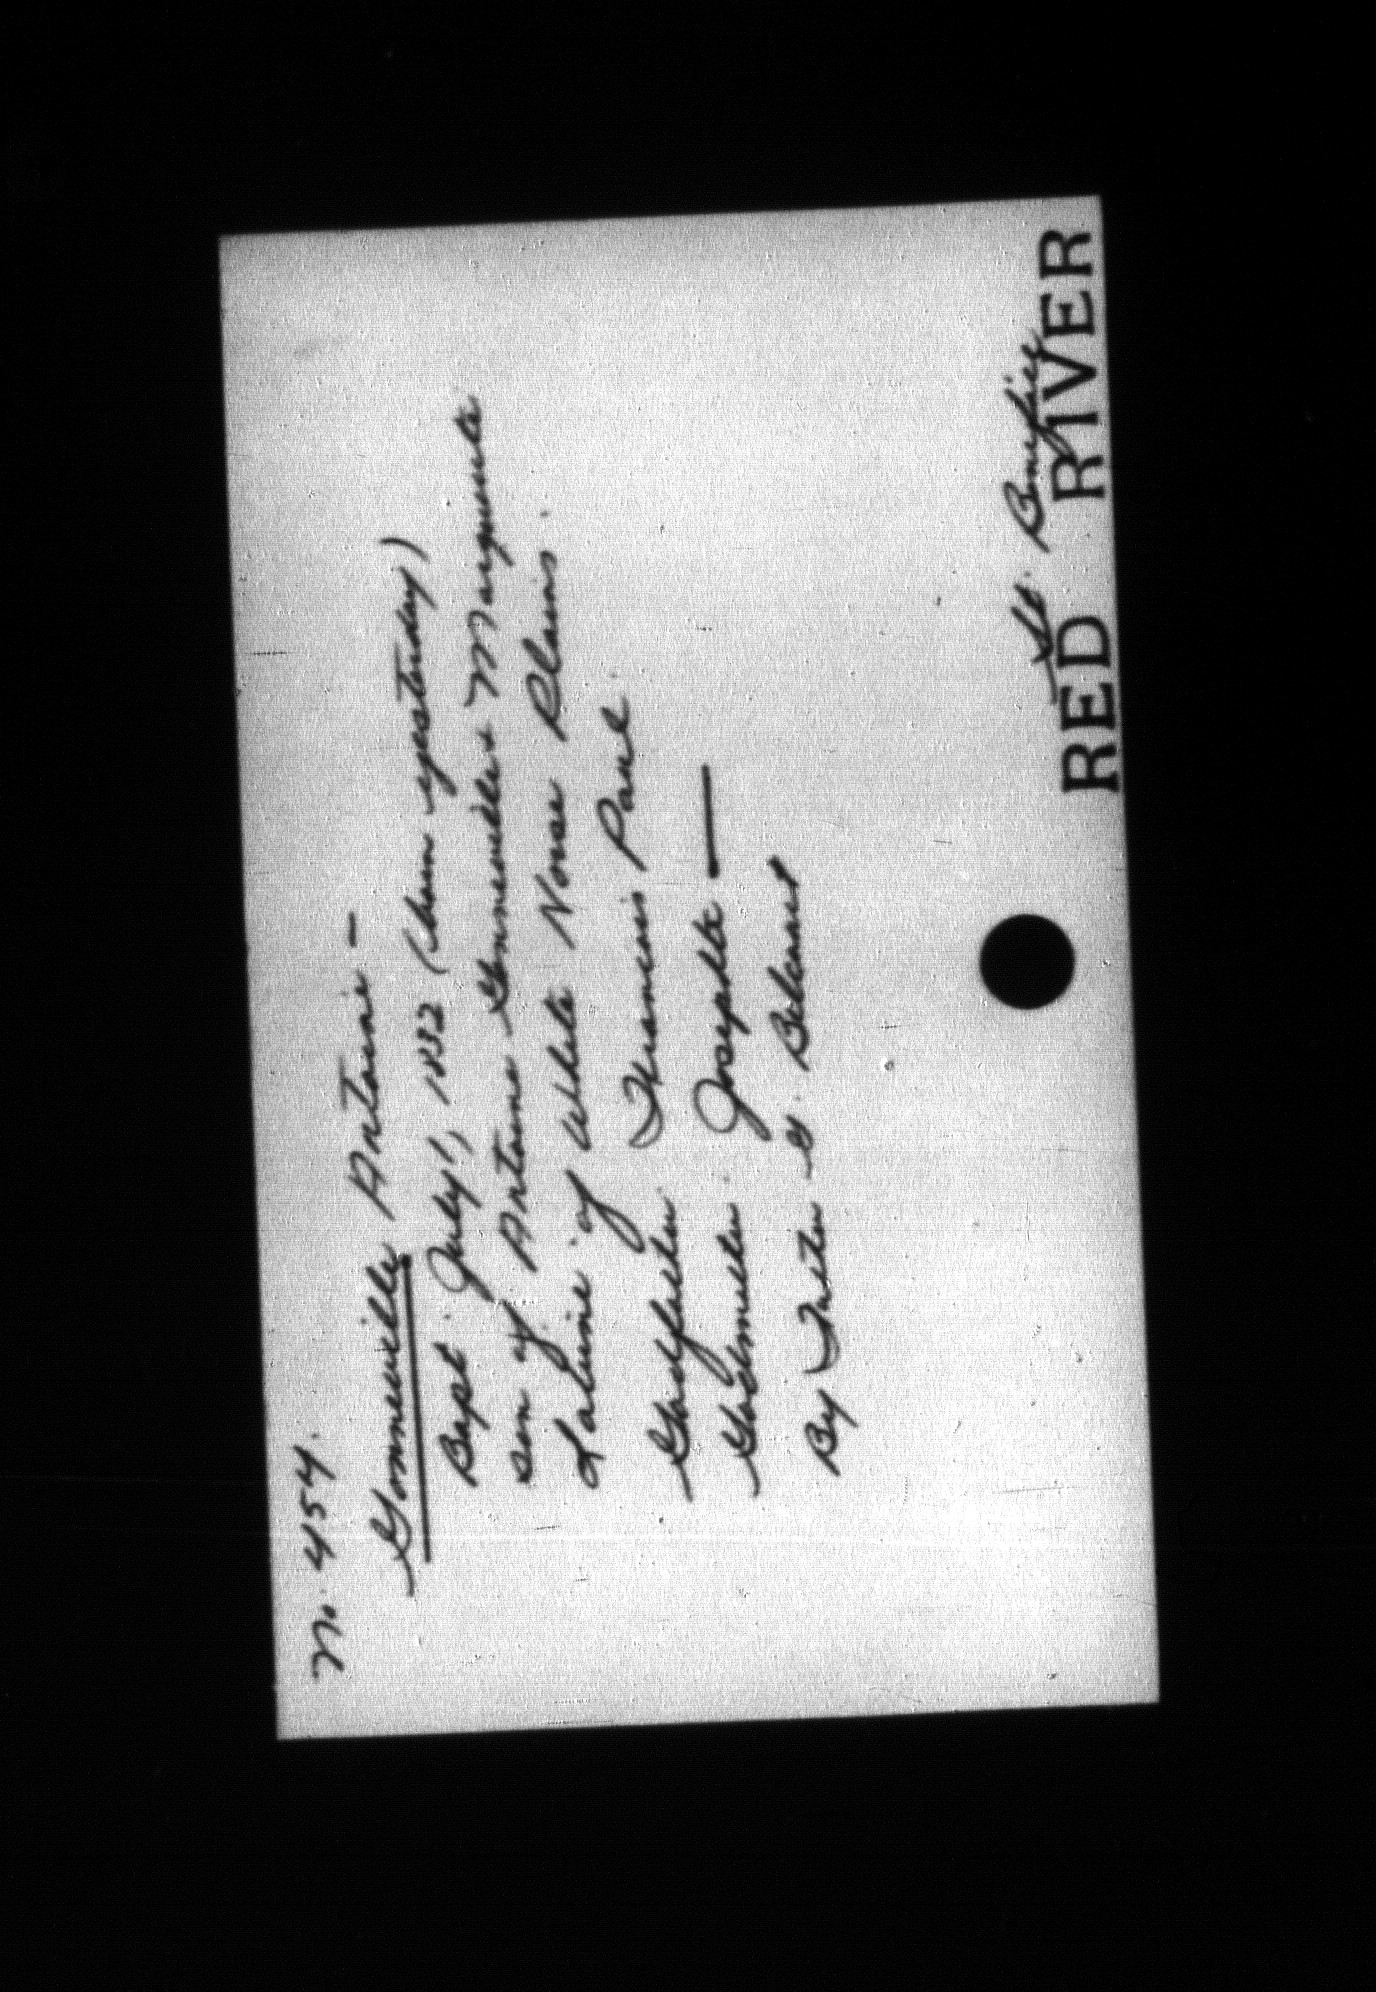 No. 454.
Gonneville Antoine -
Bapt. July 1, 1832 (born yesterday)
son of Antoine Gonneville & Marguerite
Labine of White Horse Plains.
Godfather Francois Paul
Godmother. Josephte —
By Father G. Belcourt
St. Boniface
RED RIVER